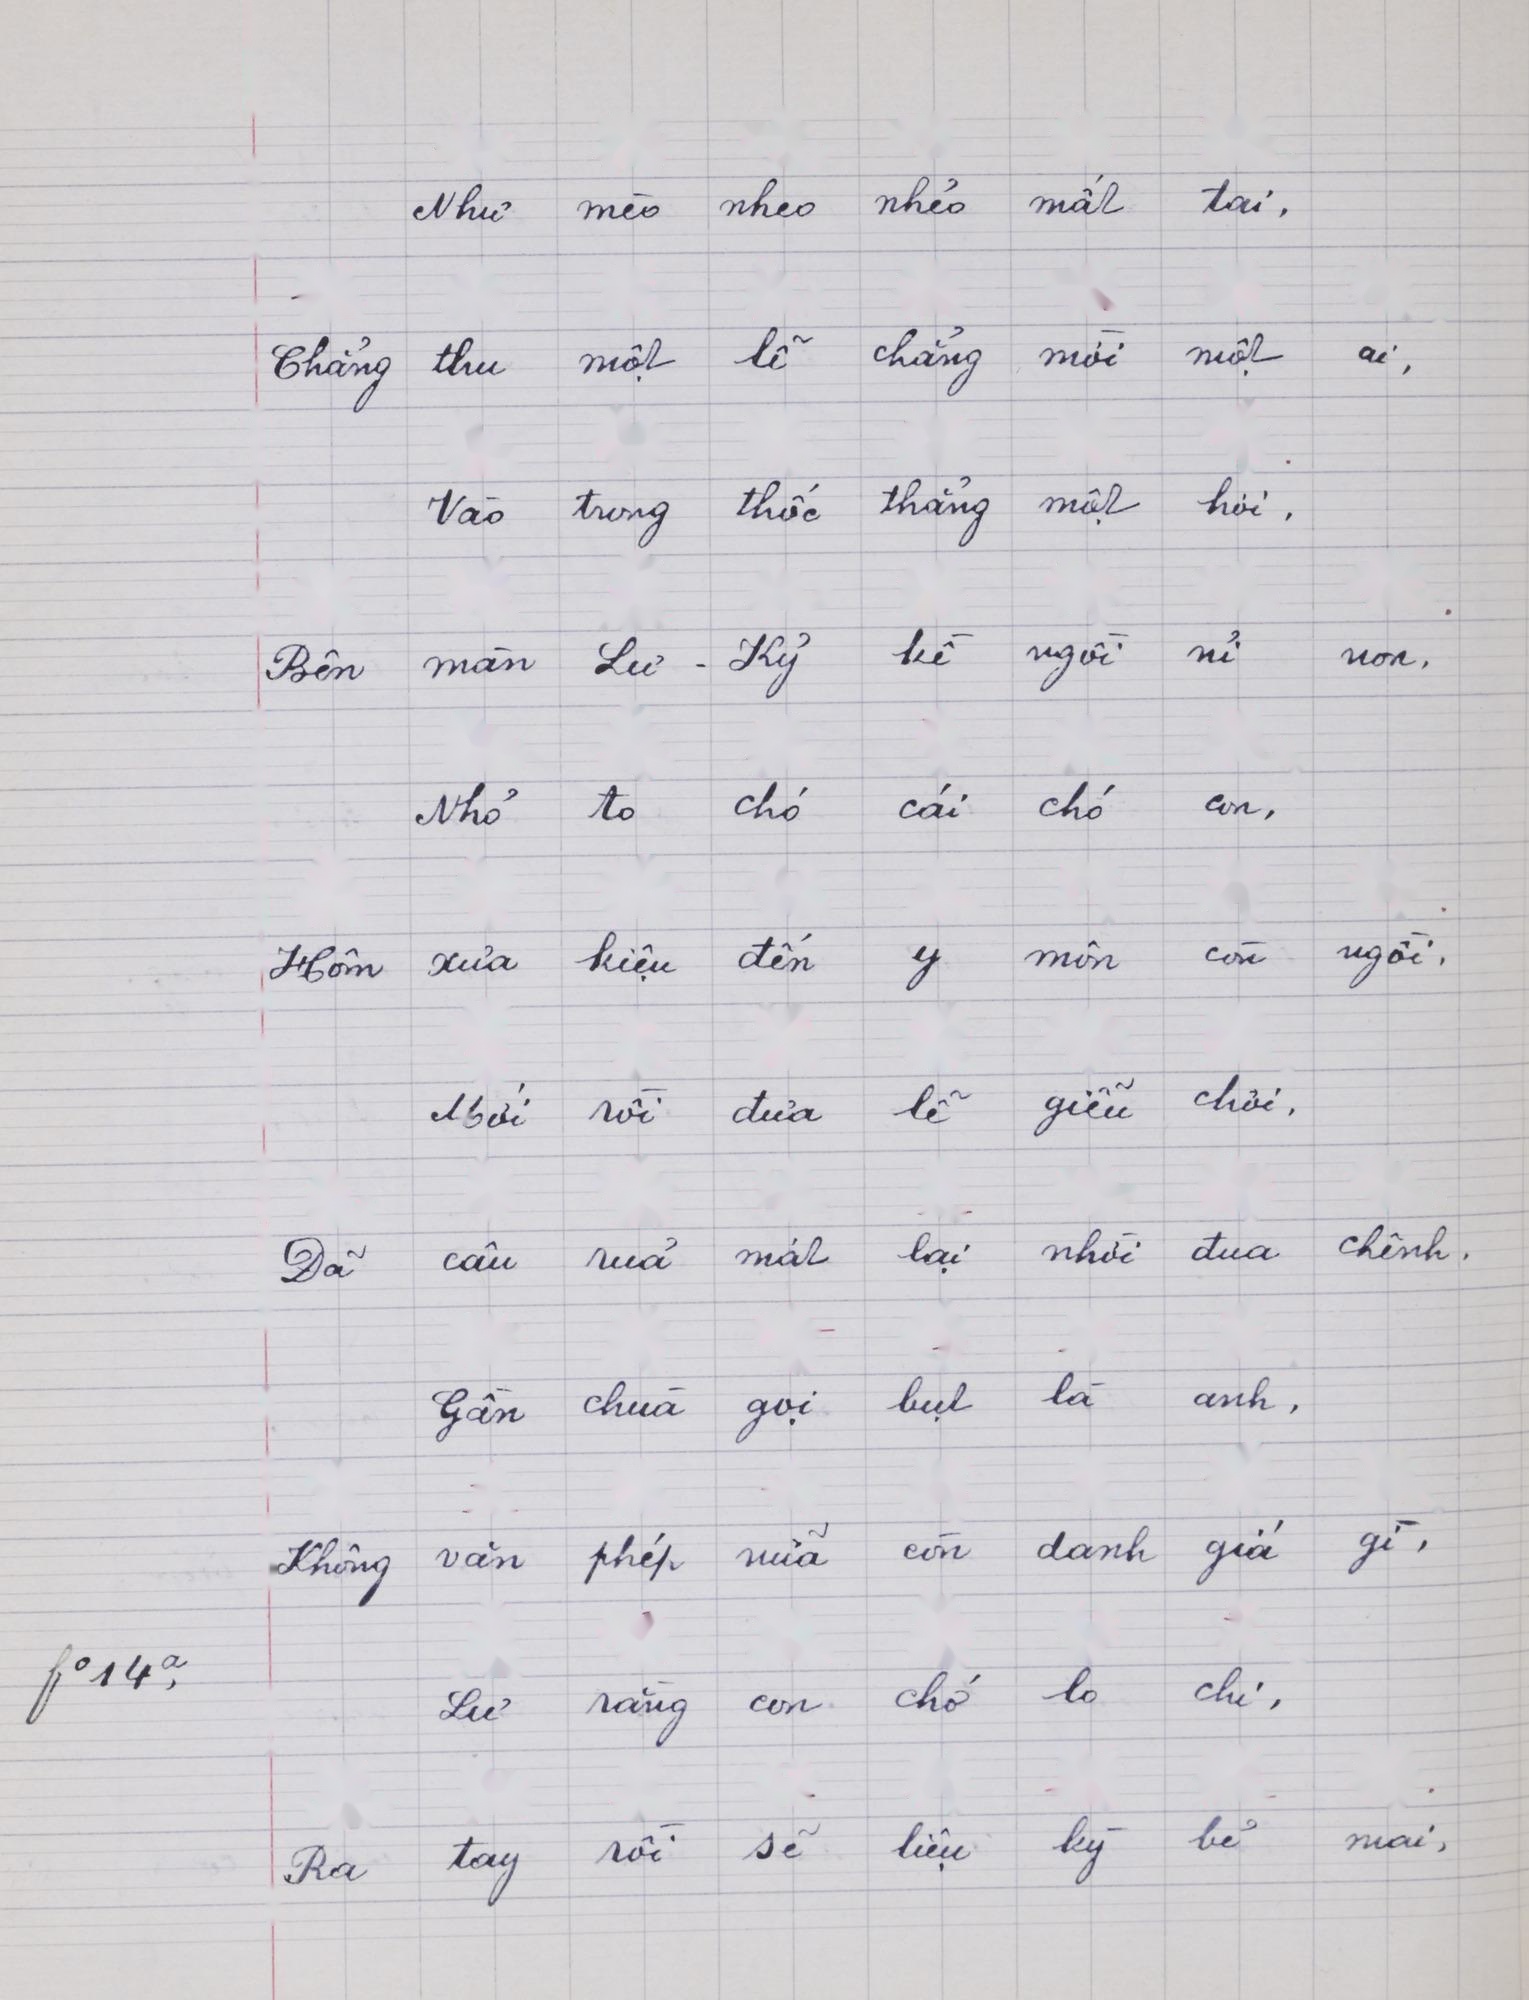 Như mèo nheo nhẻo mất tai,
Chẳng thu một lễ chẳng mời một ai,
Vào trong thốc thẳng một hơi,
Bên màn Lư-Kỷ kề ngồi nỉ non,
Nhỏ to chó cái chó con,
Hôm xưa kiệu đến y môn còn ngồi,
Mới rồi đưa lễ giễu chơi,
Dã câu ruả mát lại nhồi đua chênh.
Gần chuà gọi bụt là anh,
Không văn phép nưã còn danh giá gì,
f° 14a,
Lư rằng con chớ lo chi,
Ra tay rồi sẽ liệu kỳ bẻ mai,